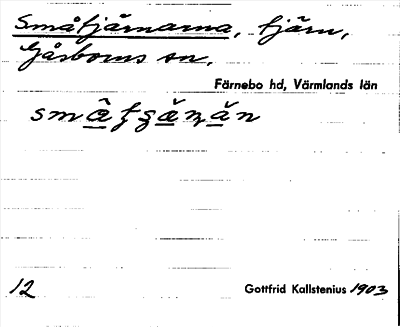 Småtjärnarna, tjärn,
Gåsborns sn.
Färnebo hd, Värmlands län
12
Gottfrid Kallstenius 1903